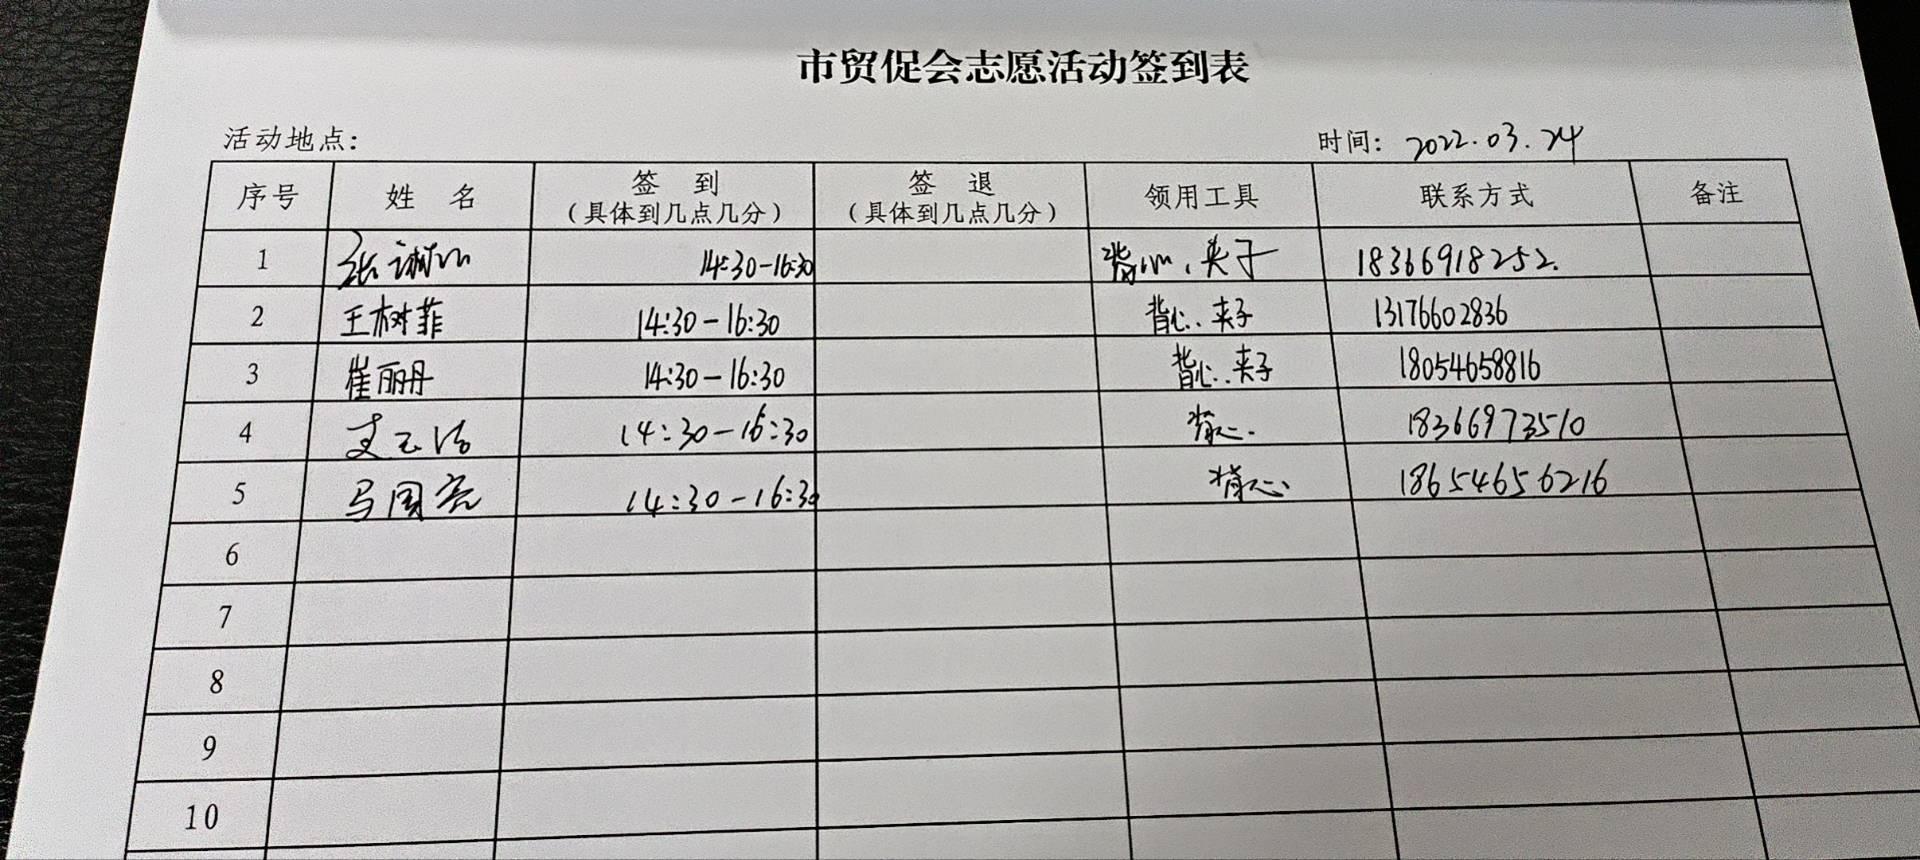 市贸促会志愿活动签到表
活动地点: 时间: 2022.03.24
序号 姓 名 签 到 签 退 领用工具 联系方式 备注
(具体到几点几分) (具体到几点几分)
1 张 14:30-16:30 背心、夹子 18366918252.
2 王树菲 14:30-16:30 背心、夹子 13176602836
3 崔丽丹 14:30-16:30 背心、夹子 18054658816
4 支玉洁 14:30-16:30 背心. 18366973510
5 马国亮 14:30-16:30 背心 18654656216
6
7
8
9
10